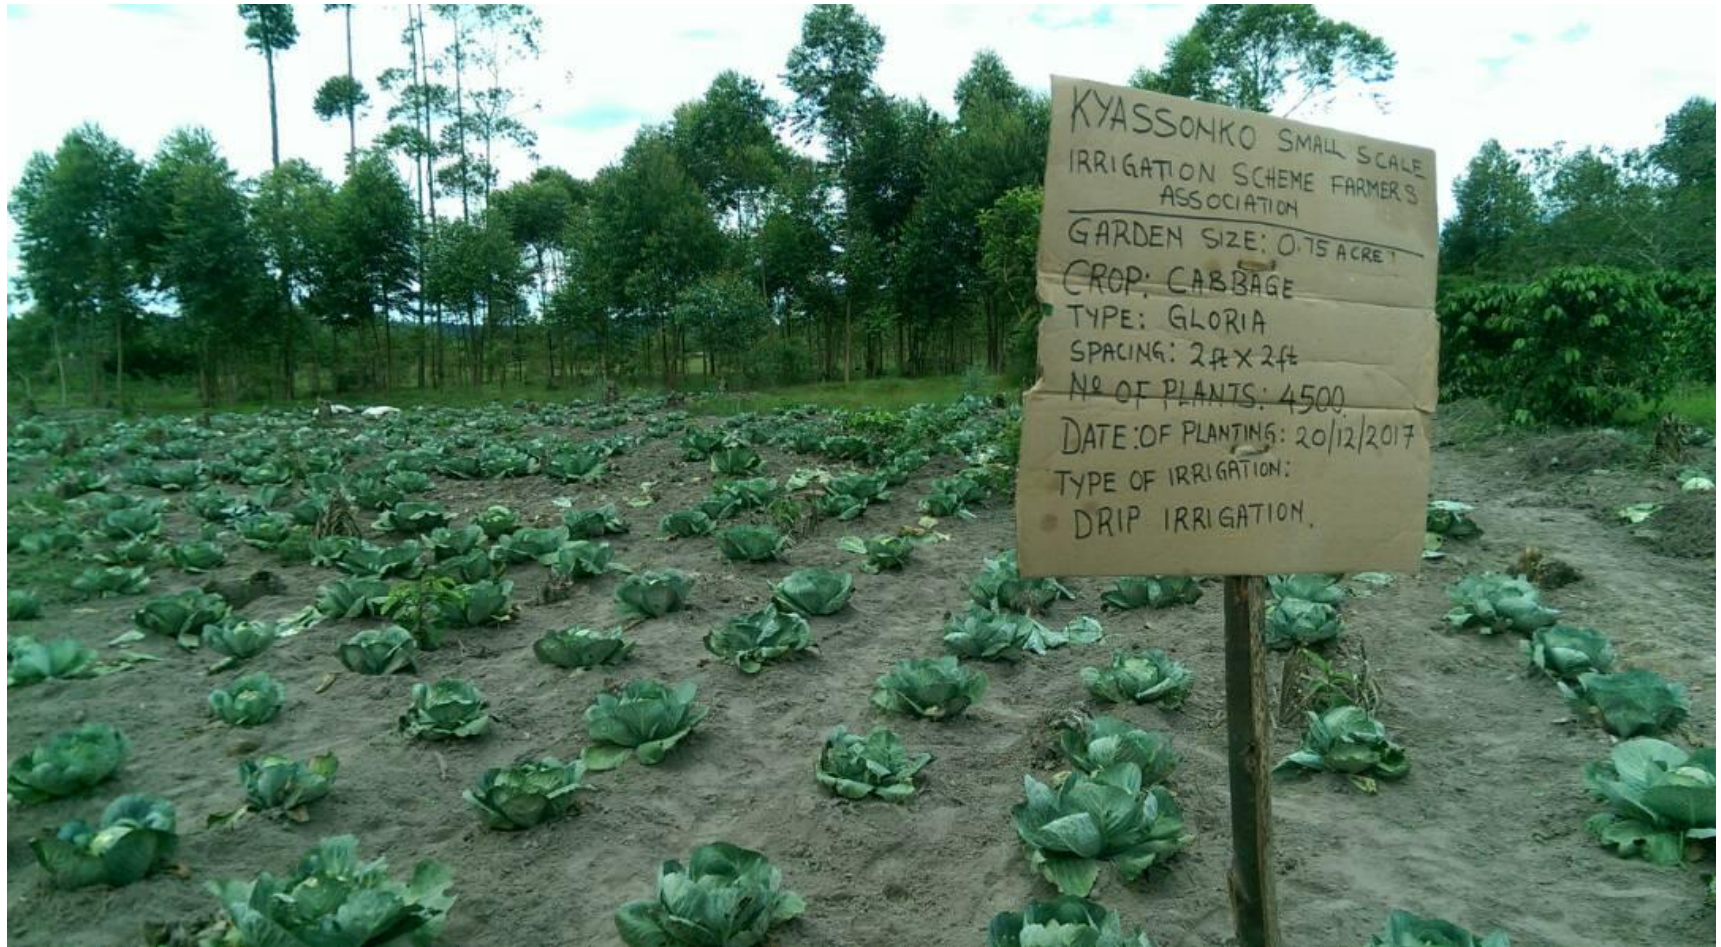 KYASSONKO SMALL SCALE
IRRIGATION SCHEME FARMERS
ASSOCIATION
GARDEN SIZE: 0.75 ACRE
CROP: CABBAGE
TYPE: GLORIA
SPACING: 2ft X 2ft
Nº OF PLANTS: 4500
DATE:OF PLANTING: 20/12/2017
TYPE OF IRRIGATION:
DRIP IRRIGATION.